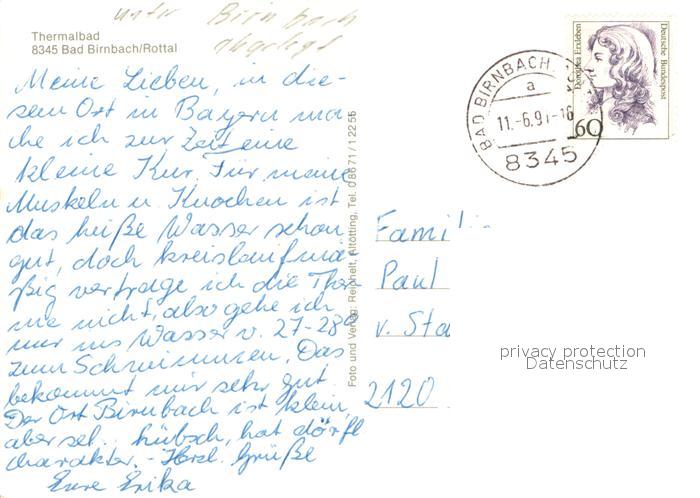 unter Birnbach
abgelegt
Thermalbad
8345 Bad Birnbach/Rottal
Meine Lieben, in die-
sem Ort in Bayern ma-
che ich zur Zeit eine
kleine Kur. Für meine
Muskeln u. Knochen ist
das heiße Wasser schon
gut, doch kreislaufmä-
ßig vertrage ich die Ther
me nicht, also gehe ich
nur ins Wasser v. 27-28°
zum Schwimmen. Das
bekommt mir sehr gut.
Der Ort Birnbach ist klein,
aber hübsch, hat dörfl
charakter. - Herzl. Grüße
Eure Erika
Foto und Verlag: Reichelt, Altötting, Tel. 08671/12255
BAD BIRNBACH
a
11.-6.97-16
8345
Dorothea Erxleben
Deutsche Bundespost
60
Famili
Paul
v. Sta
2120
privacy protection
Datenschutz